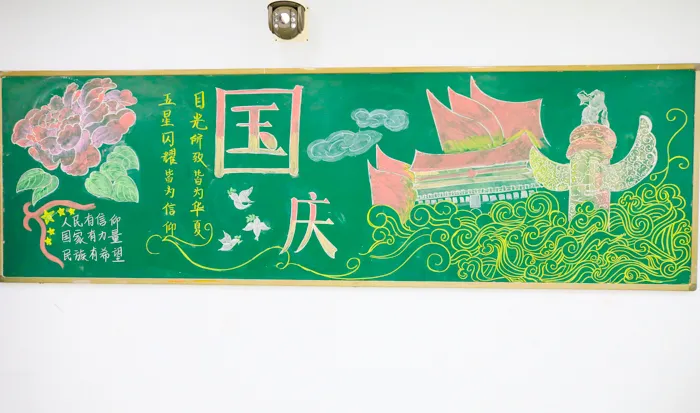 国庆
目光所致皆为华夏
五星闪耀皆为信仰
人民有信仰
国家有力量
民族有希望